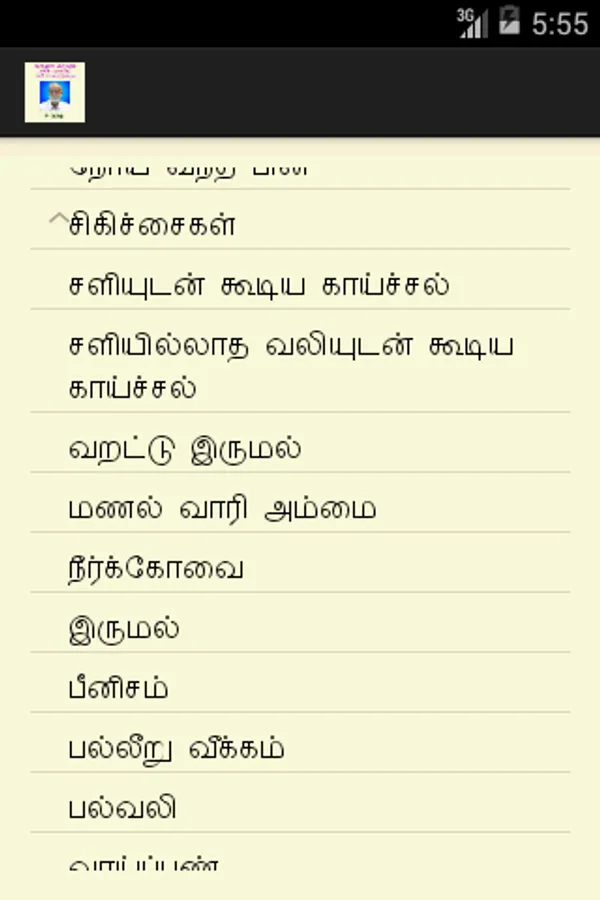 3G
5:55
நோய் வந்த பின்
சிகிச்சைகள்
சளியுடன் கூடிய காய்ச்சல்
சளியில்லாத வலியுடன் கூடிய
காய்ச்சல்
வறட்டு இருமல்
மணல் வாரி அம்மை
நீர்க்கோவை
இருமல்
பீனிசம்
பல்லீறு வீக்கம்
பல்வலி
வாய்ப்புண்